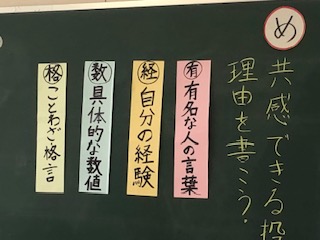 め
共感できる
理由を書こう。
有 有名な人の言葉
経 自分の経験
数 具体的な数値
格 ことわざ格言